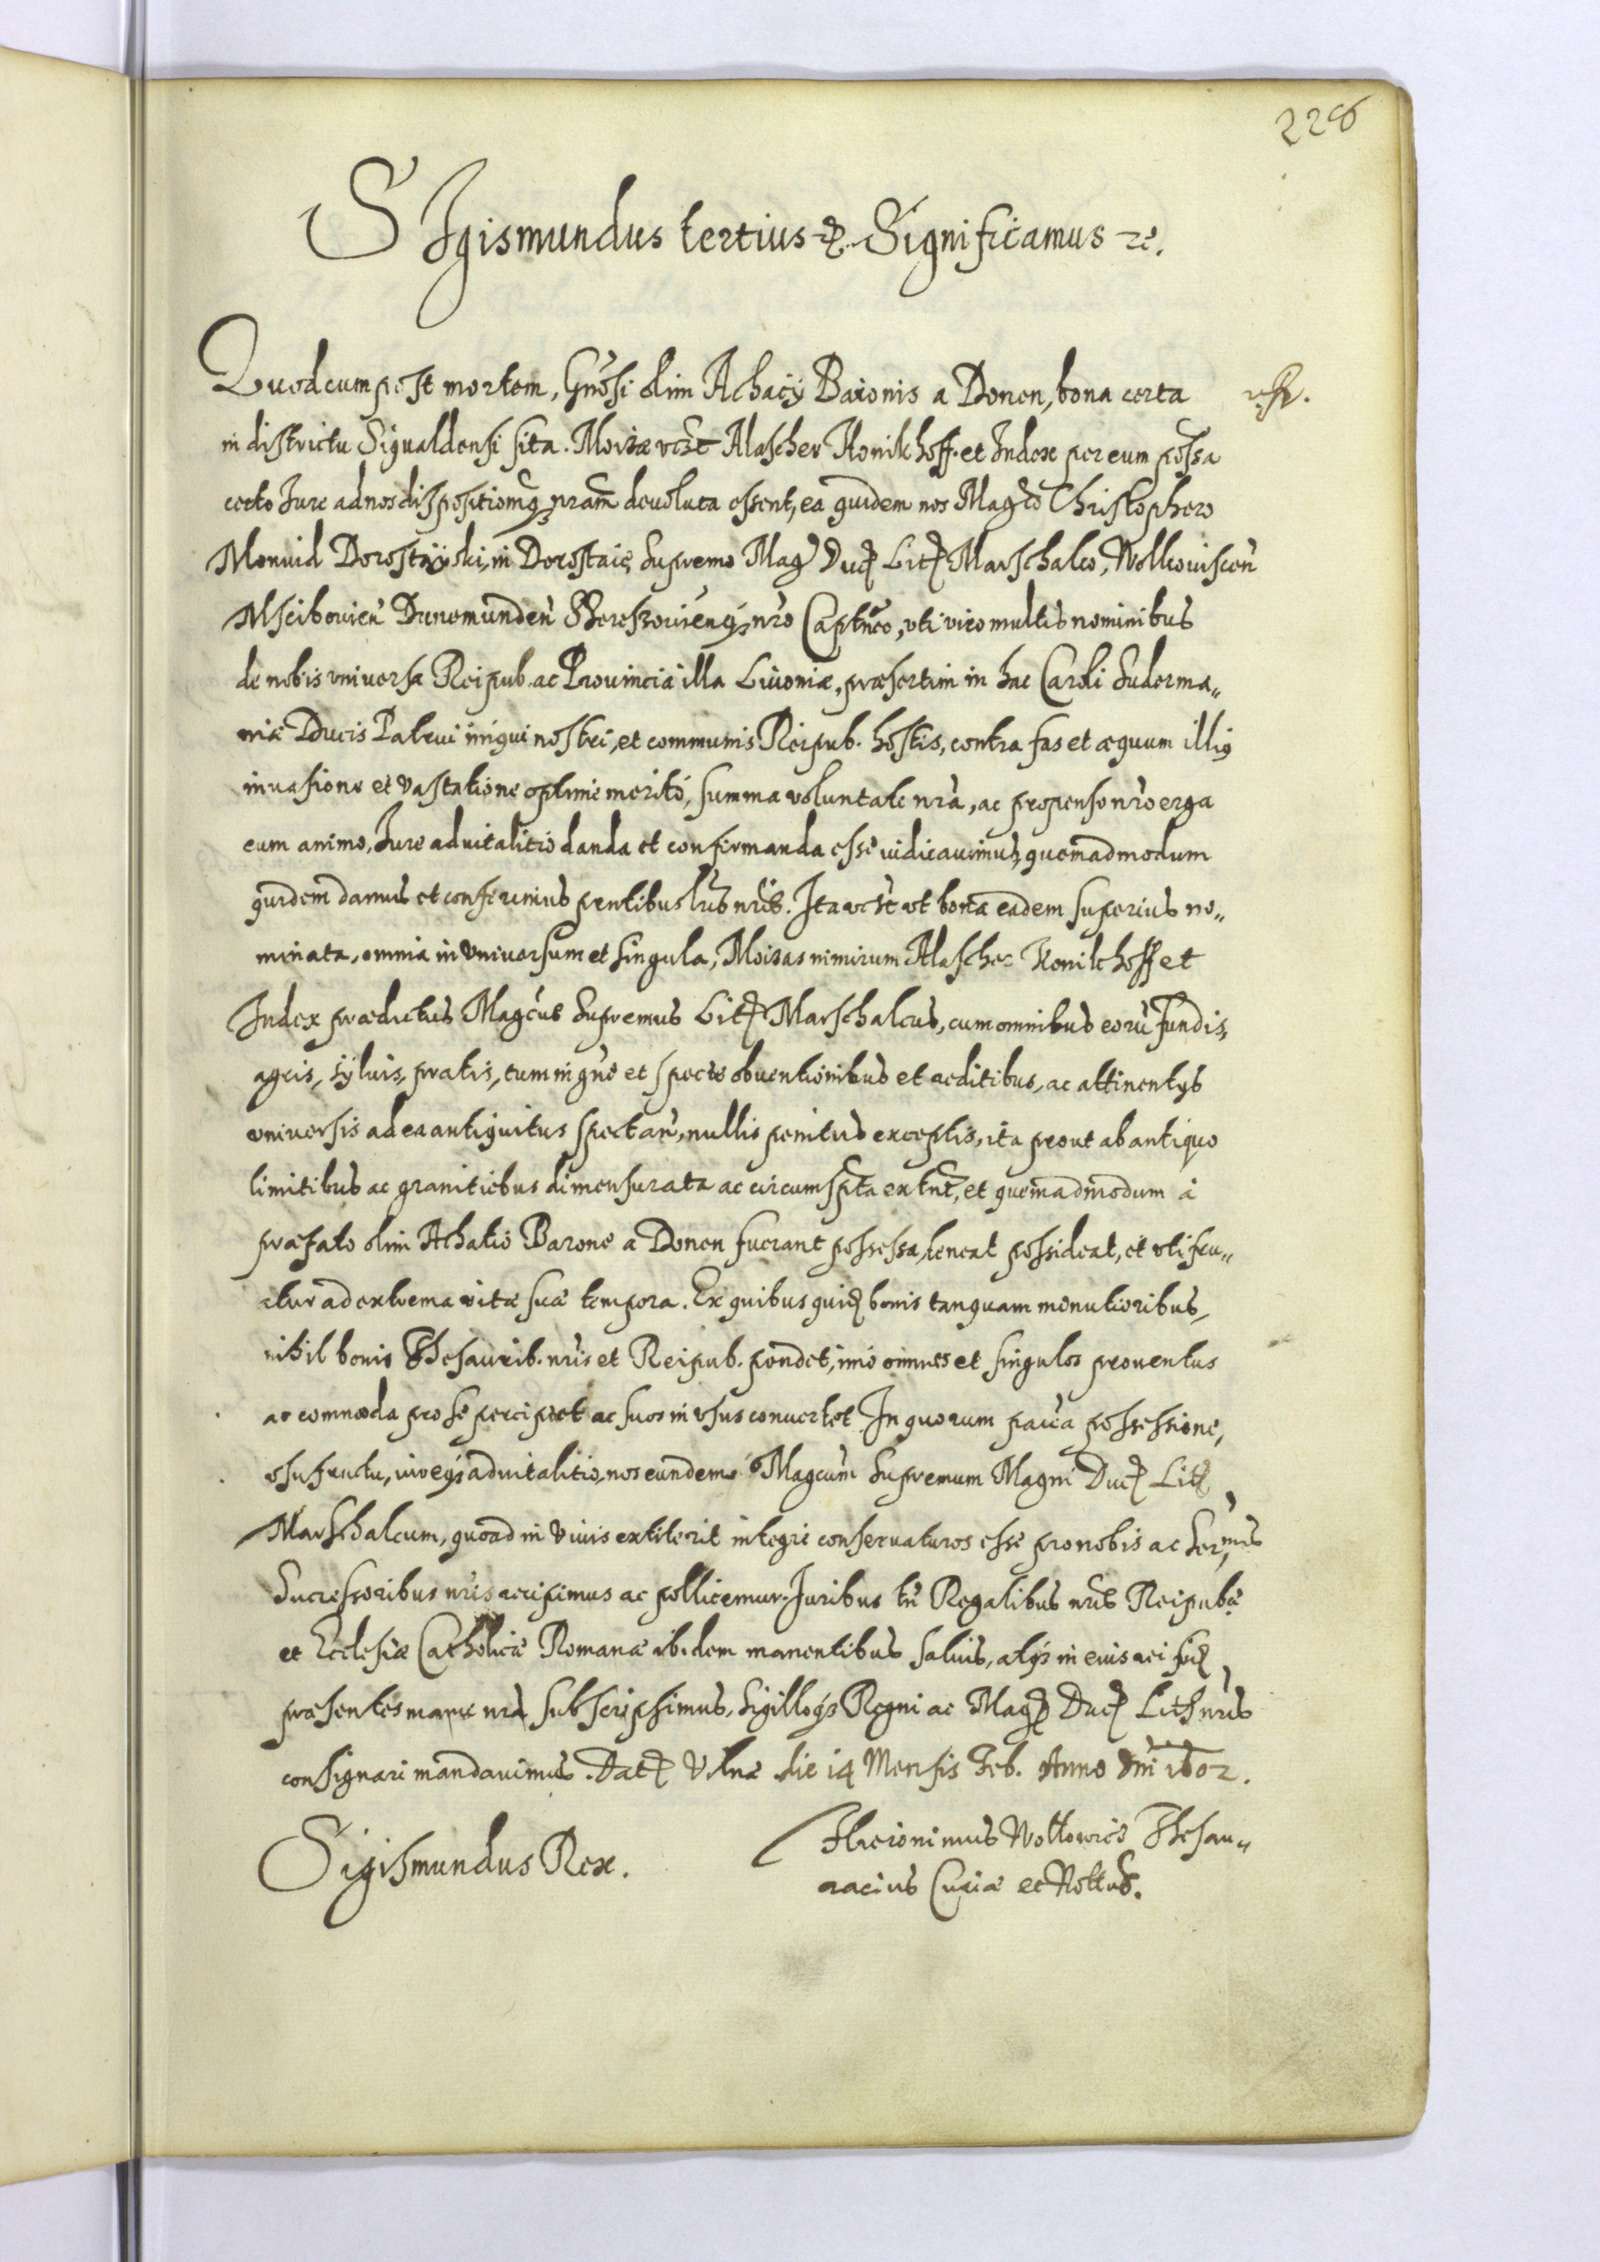 228
SIgismundus tertius etc. Significamus etc.
Quod cum post mortem, Gnosi olim Achacij Baronis a Donen, bona certa
in districtu Sigualdensi sita. Moizæ vczt Alascher Konikhoff. et Index per eum possa
certo Iure ad nos dispositionemq nram deuoluta essent, ea quidem nos Magco Christophero
Monuid Dorostayski, in Dorostaie Supremo Mag Duc Lit Marschalco, Wolkouiscen
Mscibouien Dunemunden Szereszouienq nro Captneo, vti viro multis nominibus
de nobis vniuersa Reipub. ac Prouincia illa Liuoniæ, præsertim in hac Caroli Suderma„
niæ Ducis Patrui iniqui nostri, et communis Reipub. hostis, contra fas et æquum illiq
inuasione et vastatione optime merito, summa voluntate nra, ac propenso nro erga
eum animo, Iure aduitalitio danda et confirmanda esse iudicauimus, quemadmodum
quidem damus et conferimus pntibus lris nris. Ita vczt vt bona eadem superius no„
minata, omnia in vniuersum et singula, Moizas nimirum Alascher Konikhoff et
Index prædictus Magcus Supremus Lit Marschalcus, cum omnibus eoru fundis,
agris, syluis, pratis, tum in gne et specie obuentionibus et aeditibus, ac attinentijs
vniuersis ad ea antiquitus spectan, nullis penitus exceptis, ita prout ab antiquo
limitibus ac granitiebus dimensurata ac circumspta extnt, et quemadmodum à
præfato olim Achatio Barone a Donen fuerant possessa, teneat possideat, et vti fru„
atur ad extrema vitæ suæ tempora. Ex quibus quid bonis tanquam menutioribus,
nihil bonis Thesaurib. nris et Reipub. pendet, imo omnes et singulos prouentus
ac commoda pro se percipiet ac suos in vsus conuertet. In quorum pacca possessione,
vsufructu, iureq aduitalitio, nos eundem Magcum Supremum Magni Duc Lit
Marschalcum, quoad in viuis extiterit integre conseruaturos esse pro nobis ac Sermis
Successoribus nris accipimus ac pollicemur. Iuribus tn Regalibus nris Reipubæ
et Ecclesiæ Catholicæ Romanæ ibidem manentibus saluis, atq in eius rei fid
præsentes manu nra subscripsimus, Sigilloq Regni ac Mag Duc Lith nris
consignari mandauimus. Dat Vilnæ die 14 Mensis Feb. Anno Dni 1602.
Sigismundus Rex.
Hieronimus Wollowicz Thesau„
rarius Curiæ et Nottus.